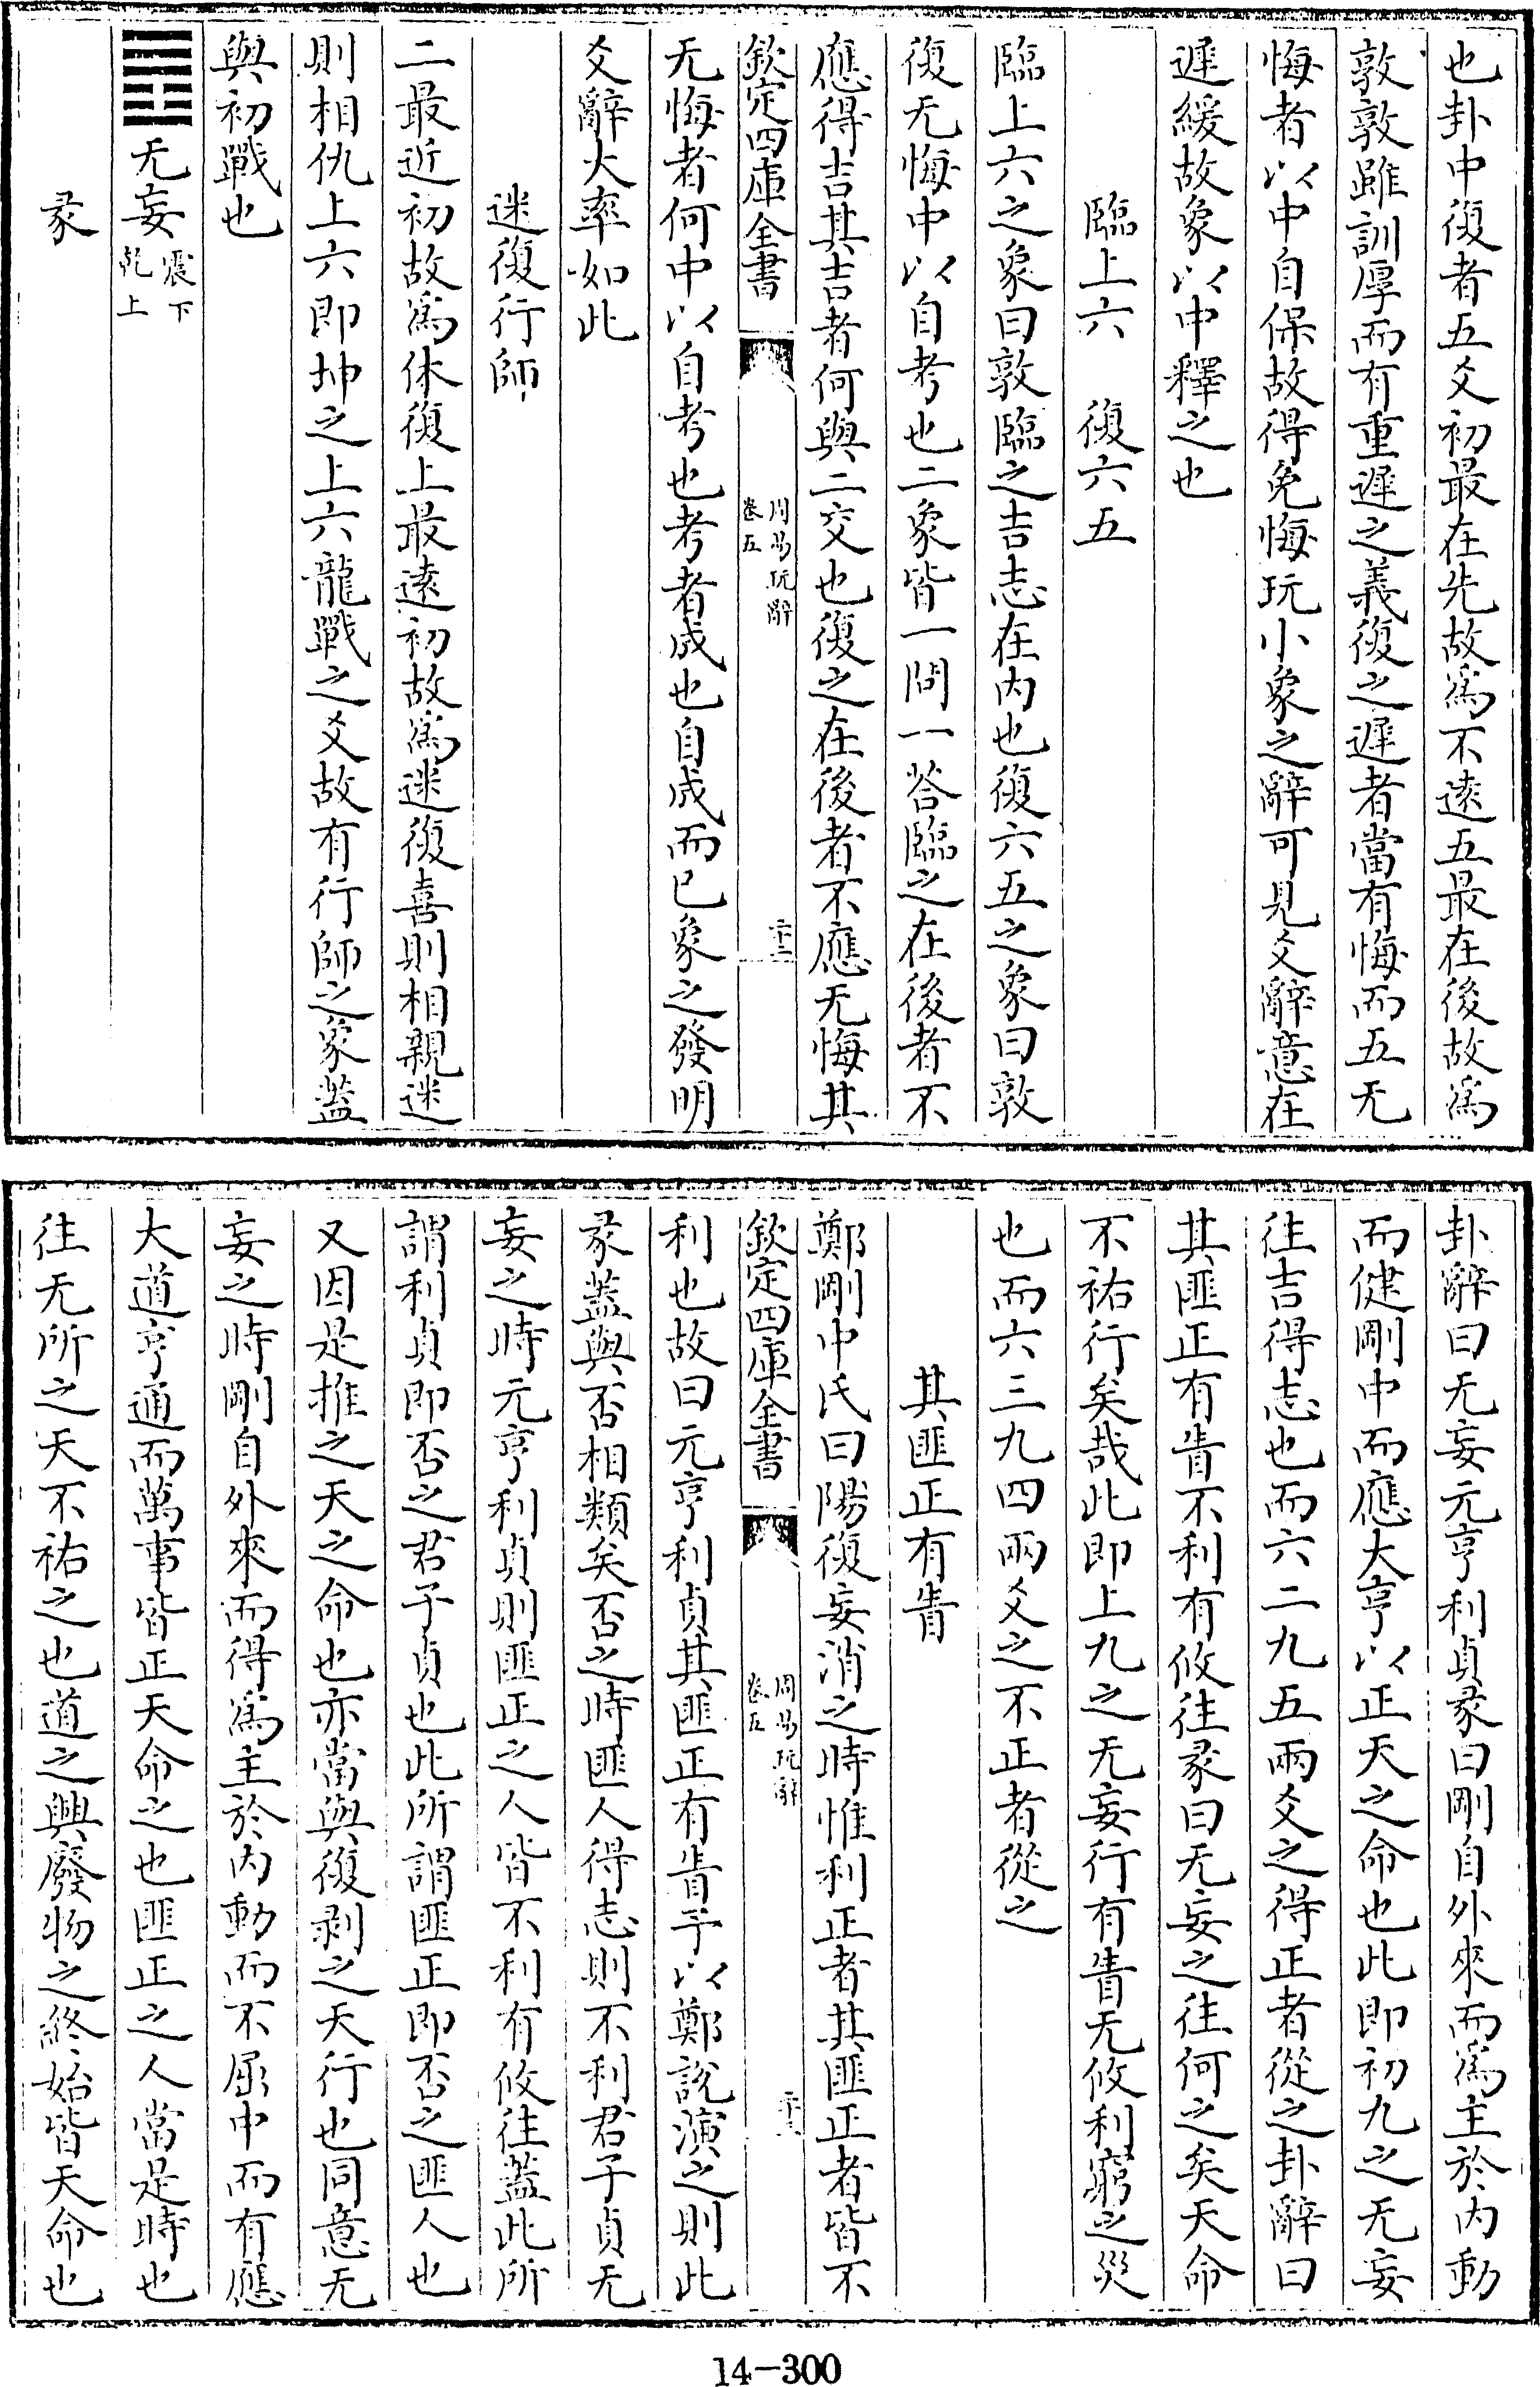 也卦中復者五爻初最在先故為不遠五最在後故為
敦敦雖訓厚而有重遲之義復之遲者當有悔而五无
悔者以中自保故得免悔玩小象之辭可見爻辭意在
遲緩故象以中釋之也
臨上六 復六五
臨上六之象曰敦臨之吉志在内也復六五之象曰敦
復无悔中以自考也二象皆一問一答臨之在後者不
應得吉其吉者何與二交也復之在後者不應无悔其
欽定四庫全書
周易玩辭
卷五
二十二
无悔者何中以自考也考者成也自成而已象之發明
爻辭大率如此
迷復行師
二最近初故為休復上最遠初故為迷復喜則相親迷
則相仇上六即坤之上六龍戰之爻故有行師之象蓋
與初戰也
䷘无妄
震下
乾上
彖
卦辭曰无妄元亨利貞彖曰剛自外來而為主於内動
而健剛中而應大亨以正天之命也此即初九之无妄
往吉得志也而六二九五兩爻之得正者從之卦辭曰
其匪正有眚不利有攸往彖曰无妄之往何之矣天命
不祐行矣哉此即上九之无妄行有眚无攸利窮之災
也而六三九四兩爻之不正者從之
其匪正有眚
鄭剛中氏曰陽復妄消之時惟利正者其匪正者皆不
欽定四庫全書
周易玩辭
卷五
利也故曰元亨利貞其匪正有眚予以鄭說演之則此
彖蓋與否相類矣否之時匪人得志則不利君子貞无
妄之時元亨利貞則匪正之人皆不利有攸往蓋此所
謂利貞即否之君子貞也此所謂匪正即否之匪人也
又因是推之天之命也亦當與復剥之天行也同意无
妄之時剛自外來而得為主於内動而不屈中而有應
大道亨通而萬事皆正天命之也匪正之人當是時也
往无所之天不祐之也道之興廢物之終始皆天命也
14-300